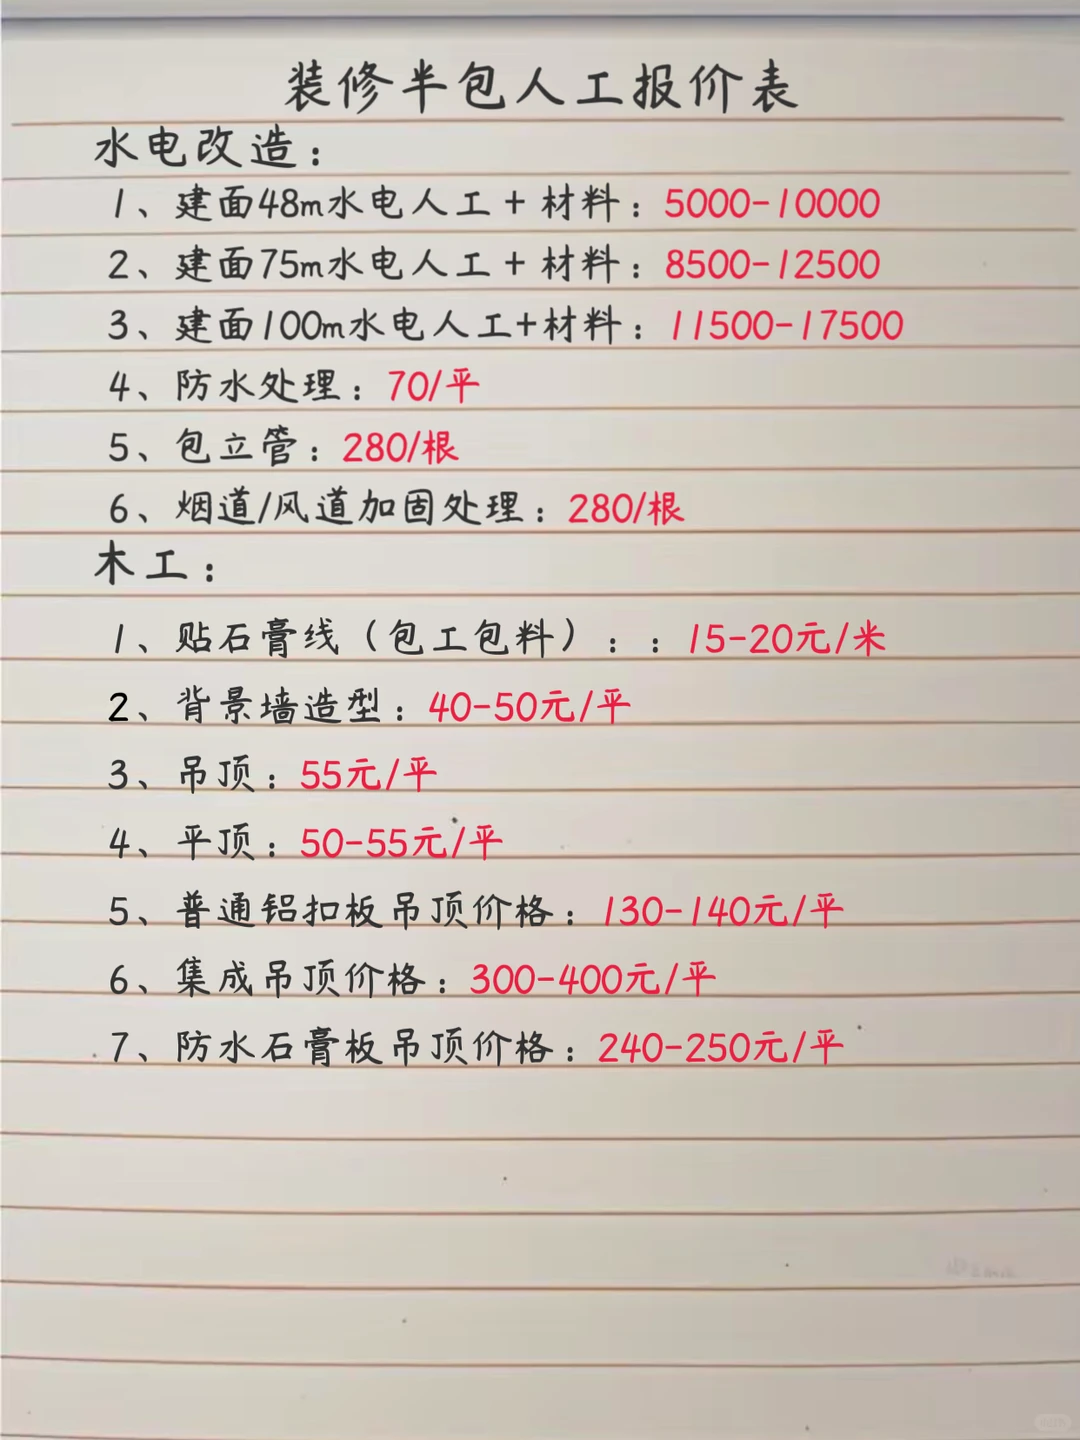 装修半包人工报价表
水电改造：
1、建面48m水电人工+材料：5000-10000
2、建面75m水电人工+材料：8500-12500
3、建面100m水电人工+材料：11500-17500
4、防水处理：70/平
5、包立管：280/根
6、烟道/风道加固处理：280/根
木工：
1、贴石膏线（包工包料）：：15-20元/米
2、背景墙造型：40-50元/平
3、吊顶：55元/平
4、平顶：50-55元/平
5、普通铝扣板吊顶价格：130-140元/平
6、集成吊顶价格：300-400元/平
7、防水石膏板吊顶价格：240-250元/平